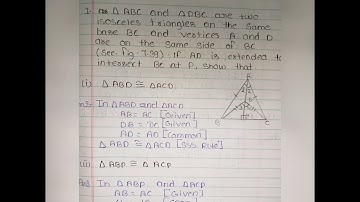 1. ΔABC and ΔDBC are two
isosceles triangles on the same
base BC and vertices A and D
are on the same side of BC
(see fig. 7.39). If AD is extended to
intersect BC at P, show that
(i) ΔABD ≅ ΔACD
Ans: In ΔABD and ΔACD
AB = AC [Given]
DB = DC [Given]
AD = AD [Common]
ΔABD ≅ ΔACD [SSS Rule]
(ii) ΔABP ≅ ΔACP
Ans In ΔABP and ΔACP
AB = AC [Given]
A
B
C